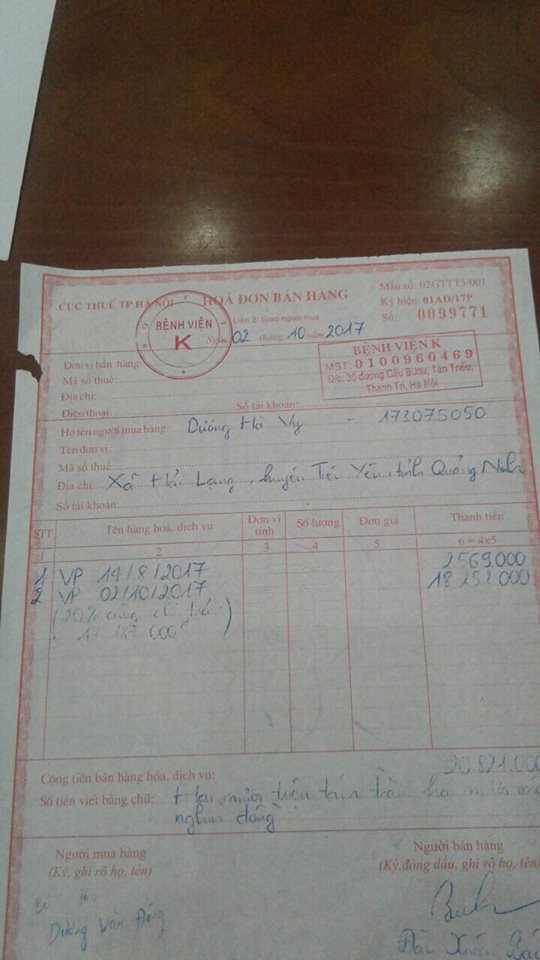 CỤC THUẾ TP HÀ NỘI
HOÁ ĐƠN BÁN HÀNG
Mẫu số: 02GTTT3/001
Ký hiệu: 01AD/17P
Liên 2: Giao người mua
Số: 0099771
Ngày 02 tháng 10 năm 2017
BỆNH VIỆN
K
BỆNH VIỆN K
MST: 0100960469
Đ/c: 30 đường Cầu Bươu, Tân Triều,
Thanh Trì, Hà Nội
Đơn vị bán hàng:
Mã số thuế:
Địa chỉ:
Điện thoại: Số tài khoản:
Họ tên người mua hàng: Dương Hà Vy - 173075050
Tên đơn vị
Mã số thuế:
Địa chỉ: Xã Hải Lạng, huyện Tiên Yên, tỉnh Quảng Ninh
Số tài khoản:
STT Tên hàng hoá, dịch vụ Đơn vị tính Số lượng Đơn giá Thành tiền
1 2 3 4 5 6 = 4x5
1 VP 14/8/2017 2569.000
2 VP 02/10/2017 18 252 000
(20%
Cộng tiền bán hàng hóa, dịch vụ: 20.821.000
Số tiền viết bằng chữ: Hai mươi triệu tám trăm hai mươi
nghìn đồng
Người mua hàng Người bán hàng
(Ký, ghi rõ họ, tên) (Ký, đóng dấu, ghi rõ họ, tên)
Dương Văn